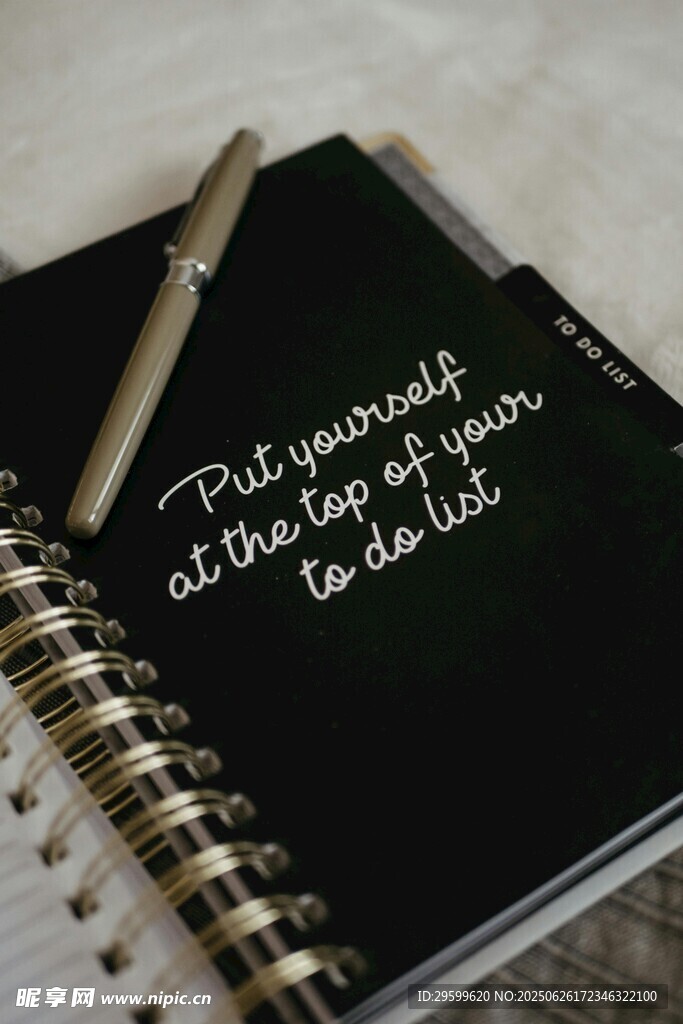 TO DO LIST
Put yourself
at the top of your
to do list
昵享网 www.nipic.cn
ID:29599620 NO:20250626172346322100